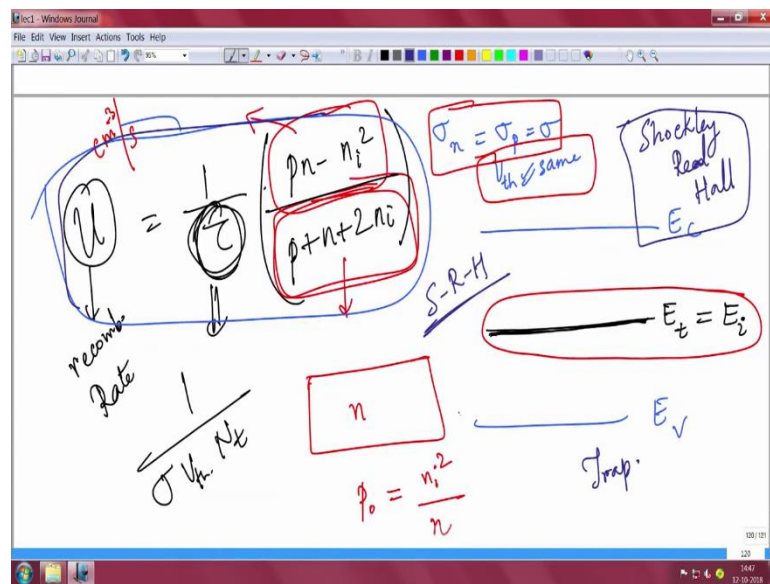 lec1 - Windows Journal
File Edit View Insert Actions Tools Help
95%
B I
cm⁻³/s
U = 1/τ (pn - nᵢ² / p + n + 2nᵢ)
recomb.
Rate
1 / σ Vth. Nt
σₙ = σₚ = σ
Vth same
Shockley
Read
Hall
E_C
S-R-H
E_t = E_i
n
E_V
p₀ = nᵢ² / n
Trap.
120 / 121
120
14:47
12-10-2018